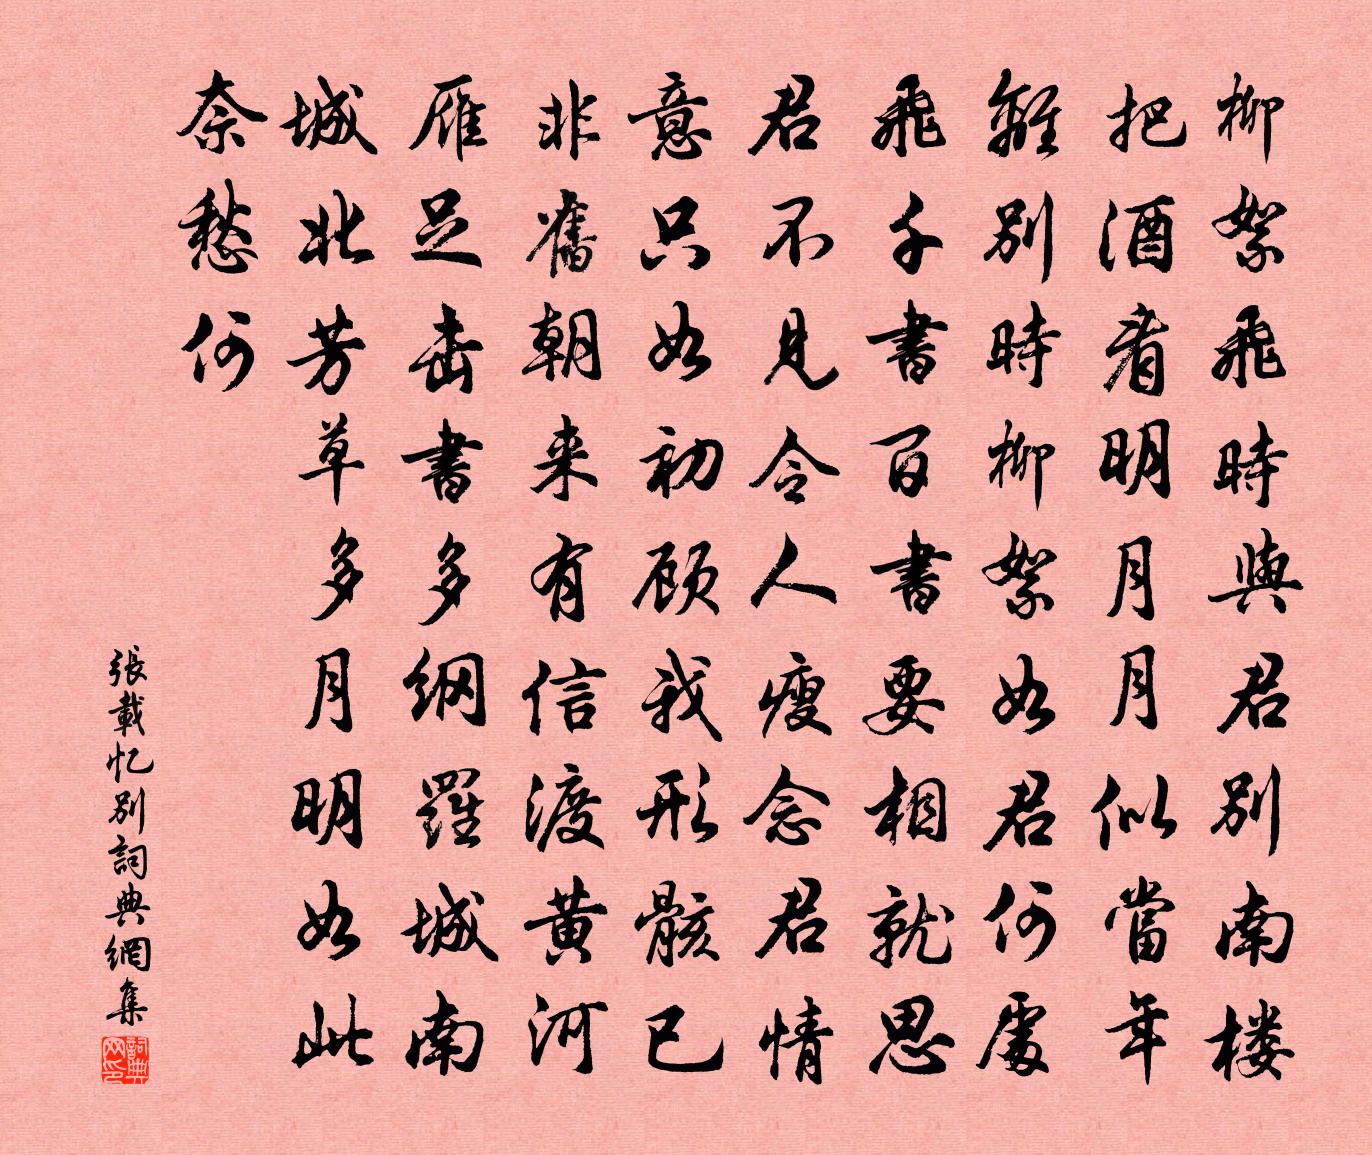 柳絮飛時與君別南楼
把酒看明月月似當年
離別時柳絮如君何處
飛千書百書要相就思
君不見令人瘦念君情
意只如初顾我形骸已
非舊朝来有信渡黄河
雁足击書多網羅城南
城北芳草多月明如此
奈愁何
張載忆別詞典網集
詞典网印